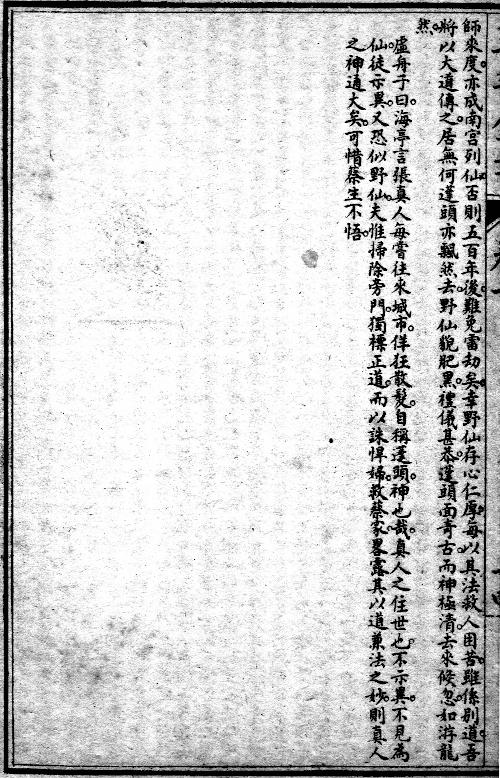 師來度亦成南宮列仙否則五百年後難免雷劫矣幸野仙存心仁厚每以其法救人困苦雖係別道吾
將以大道傳之居無何蓬頭亦飄然去野仙貌肥黑禮儀甚恭蓬頭面奇古而神極清去來倏忽如游龍
然
虛舟子曰海亭言張真人每嘗往來城市佯狂散髮自稱蓬頭神也哉真人之住世也不示異不見為
仙徒示異又恐似野仙夫惟掃除旁門獨標正道而以誅悍婦救蔡家畧露其以道兼法之妙則真人
之神通大矣可惜蔡生不悟